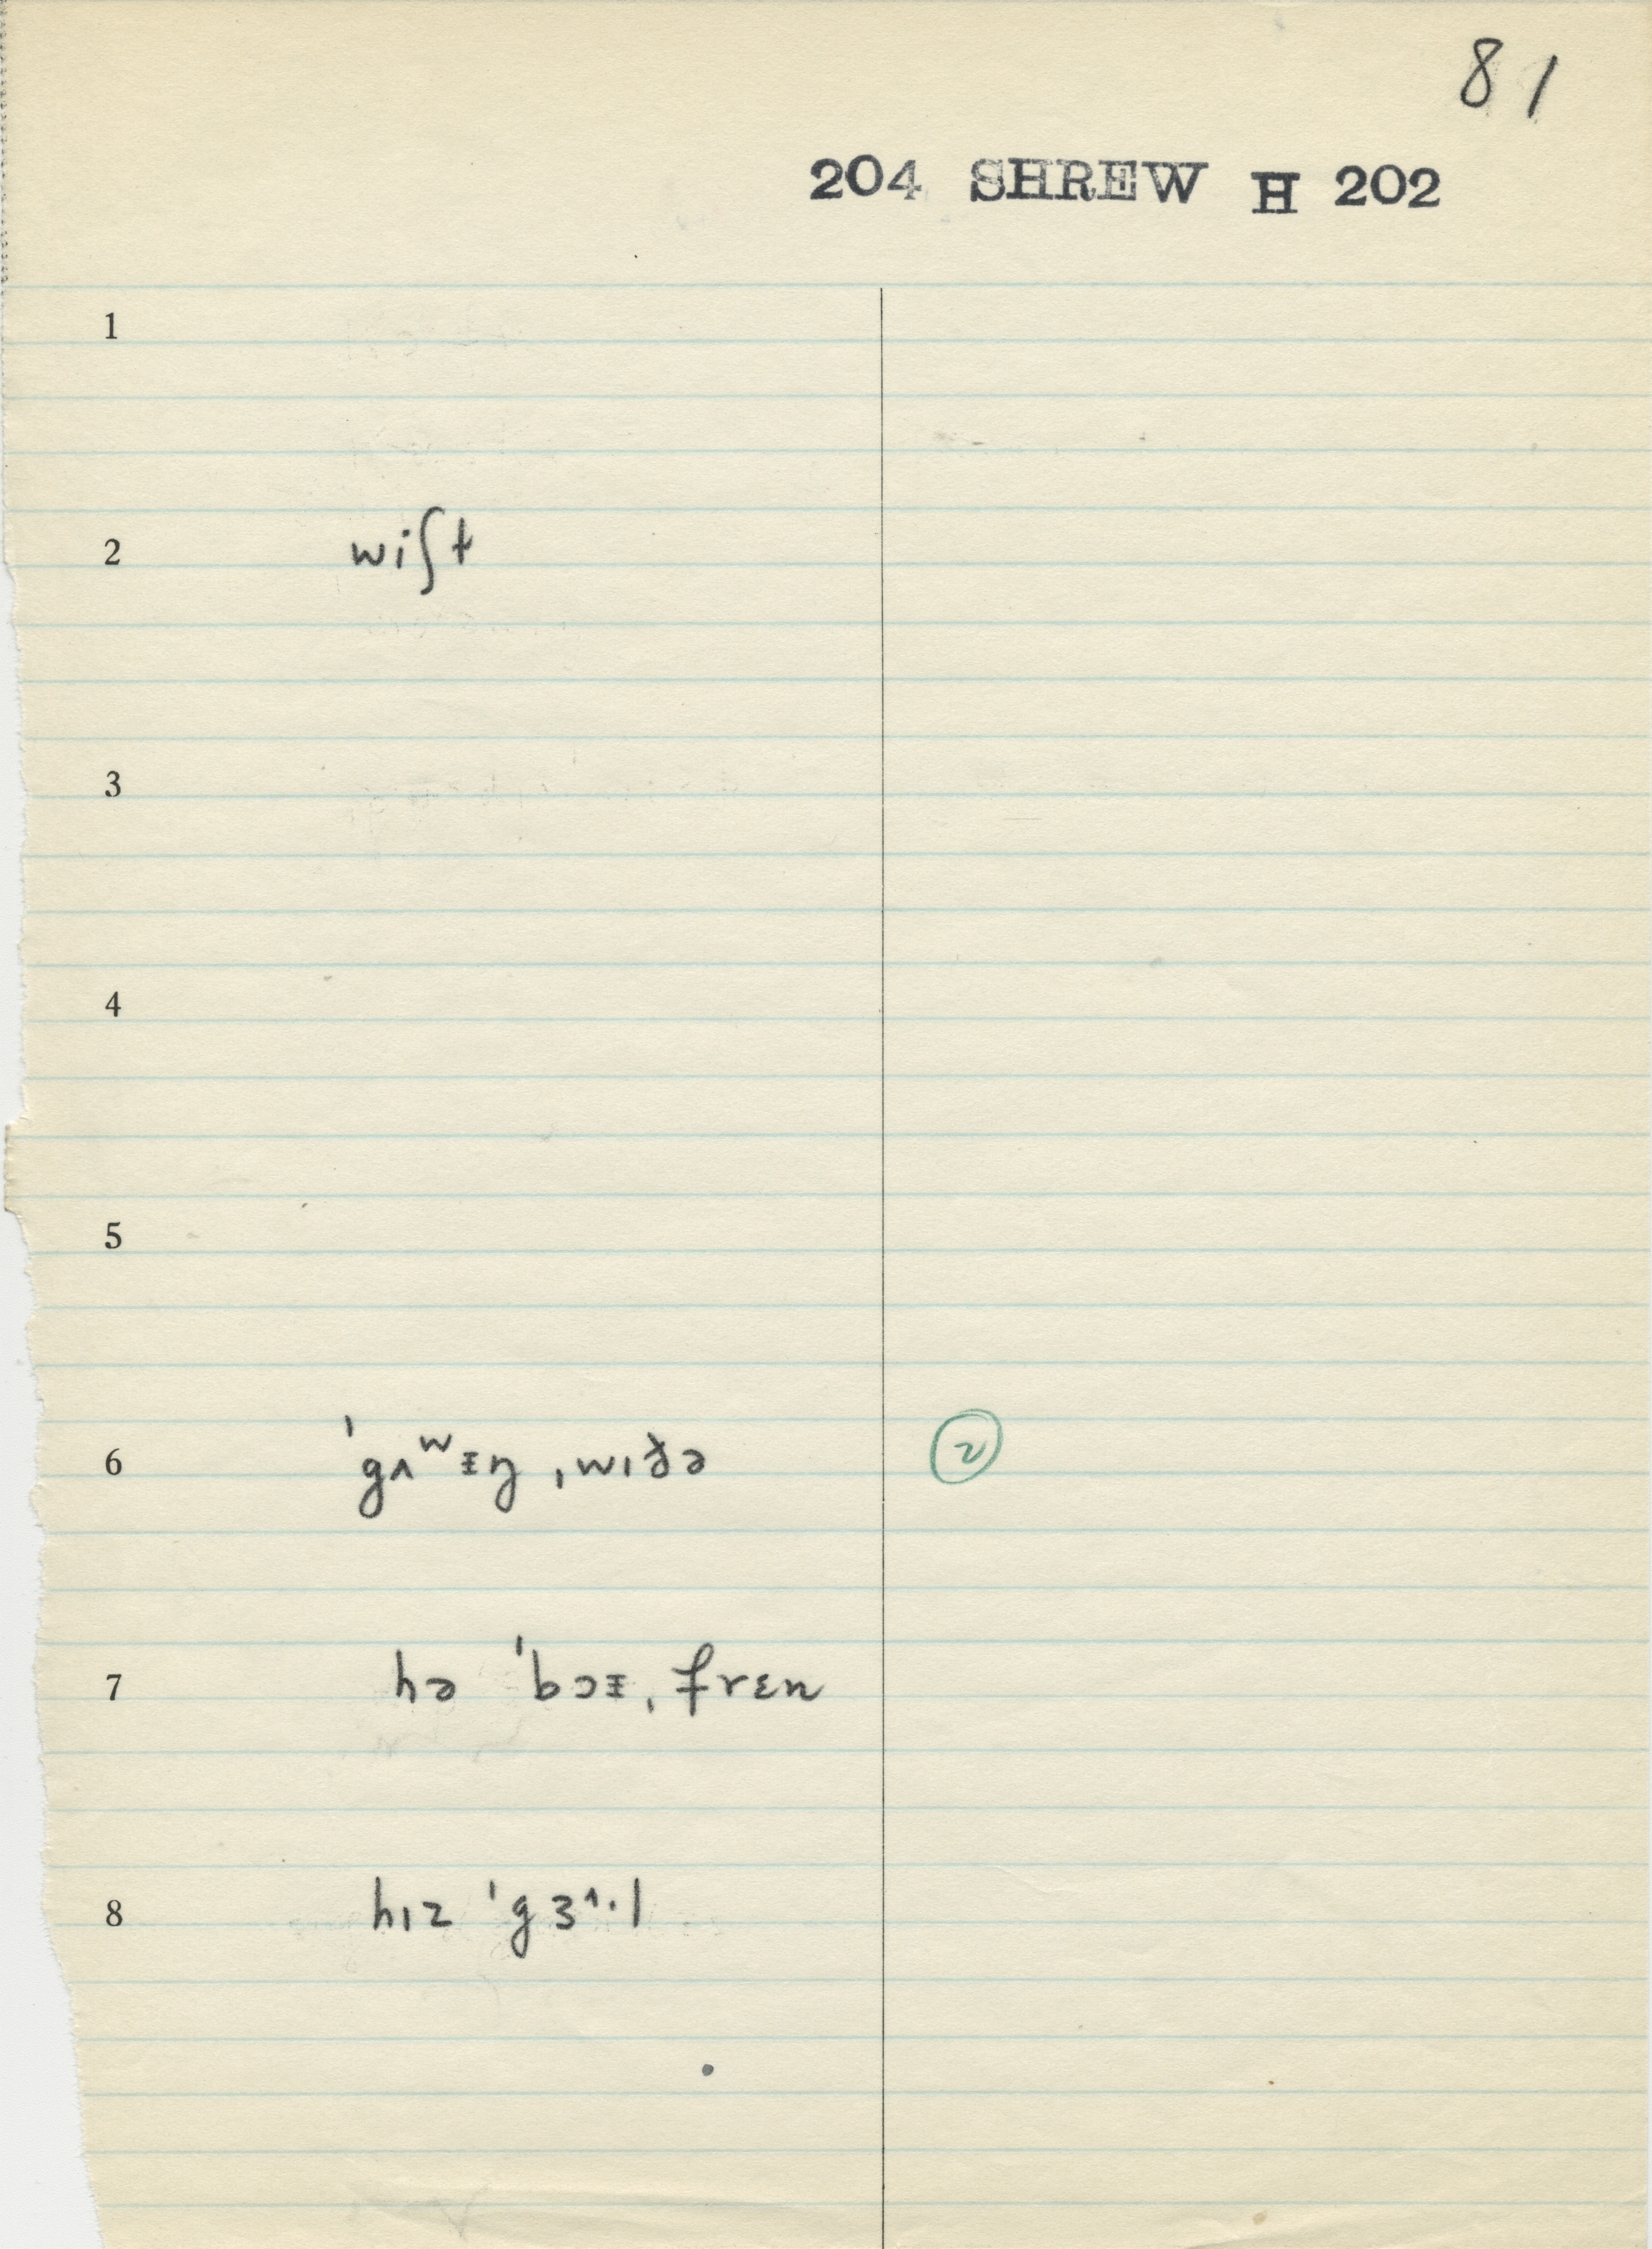 81
204 SHREW H 202
1
2 wiʃt
3
4
5
6 ˈgʌʷᵻŋ ˌwɪðə ②
7 hə ˈbɔᵻˌfrɛn
8 hɪz ˈgɜ^·l